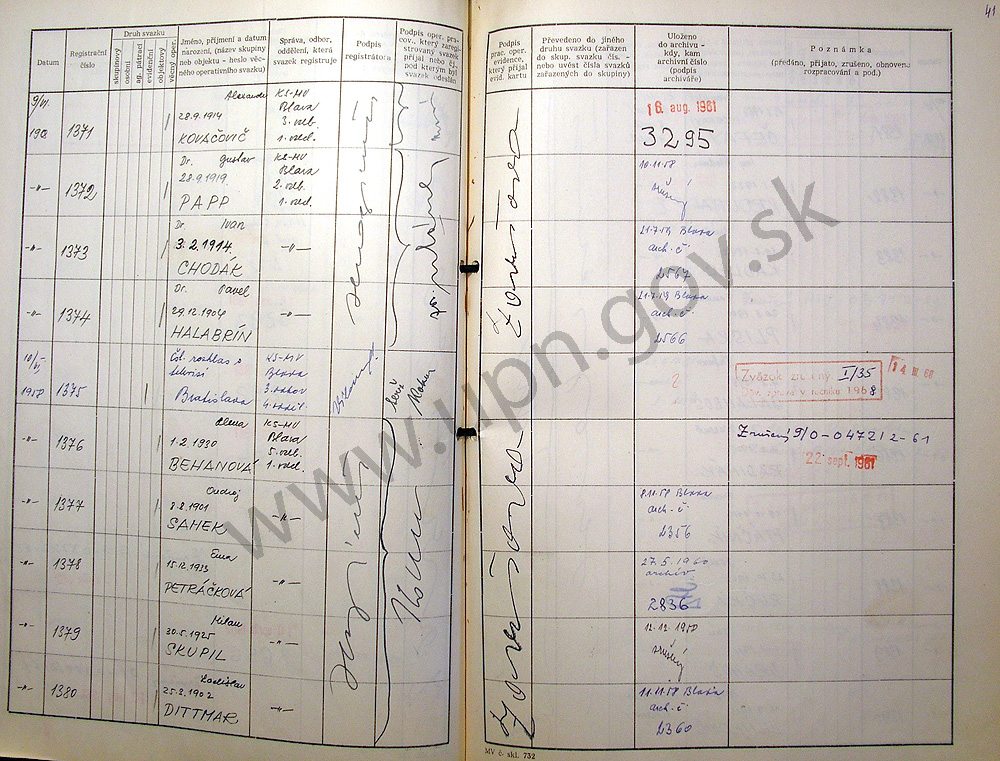 41
Datum
Registrační číslo
Druh svazku
skupinový
osobní
ag. pátrací
evidenční
objektový
věcný oper.
Jméno, příjmení a datum
narození, (název skupiny
neb objektu - heslo věc-
ného operativního svazku)
Správa, odbor,
oddělení, která
svazek registruje
Podpis
registrátora
Podpis oper. pra-
cov., který zareg-
istrovaný svazek
přijal nebo čj.,
pod kterým byl
svazek odeslán
Podpis
prac. oper.
evidence,
který přijal
evid. kartu
Převedeno do jiného
druhu svazku (zařazen
do skup. svazku čís. -
nebo uvést čísla svazků
zařazených do skupiny)
Uloženo
do archivu -
kdy, kam
archivní číslo
(podpis
archiváře)
Poznámka
(předáno, přijato, zrušeno, obnoveno
rozpracování a pod.)
9/VI.
1371
Alexander
28.9.1914
KOVAČOVIČ
KS-MV
Blava
3. odb.
1. odd.
16. aug. 1961
3295
-"-
1372
Dr. Gustav
28.9.1919
PAPP
KS-MV
Blava
2. odb.
1. odd.
10.11.58
zrušený
-"-
1373
Dr. Ivan
3.2.1914.
CHODÁK
-"-
21.7.59 Blava
arch. č.
2567
-"-
1374
Dr. Pavel
29.12.1904
HALABRÍN
-"-
21.7.59 Blava
arch. č.
2566
10/VI.
1958
1375
Čsl. rozhlas a
televisi
Bratislava
KS-MV
Blava
Zväzok zrušený I/35
v ročníku 1968
-"-
1376
Elena
1.2.1930
BEHANOVÁ
KS-MV
Blava
5. odb.
1. odd.
Zrušený 9/0-0472/2-61
22. sept. 1961
-"-
1377
Ondrej
8.8.1901
SAHEK
-"-
8.11.58 Blava
arch. č.
2356
-"-
1378
Ema
15.12.1933
PETRÁČKOVÁ
-"-
27.5.1960
archív
2836
-"-
1379
Milan
30.5.1925
SKUPIL
-"-
12.12.1958
zrušený
-"-
1380
Ladislav
25.8.1902
DITTMAR
-"-
11.11.58 Blava
arch. č.
2360
MV č. skl. 732
www.upn.gov.sk